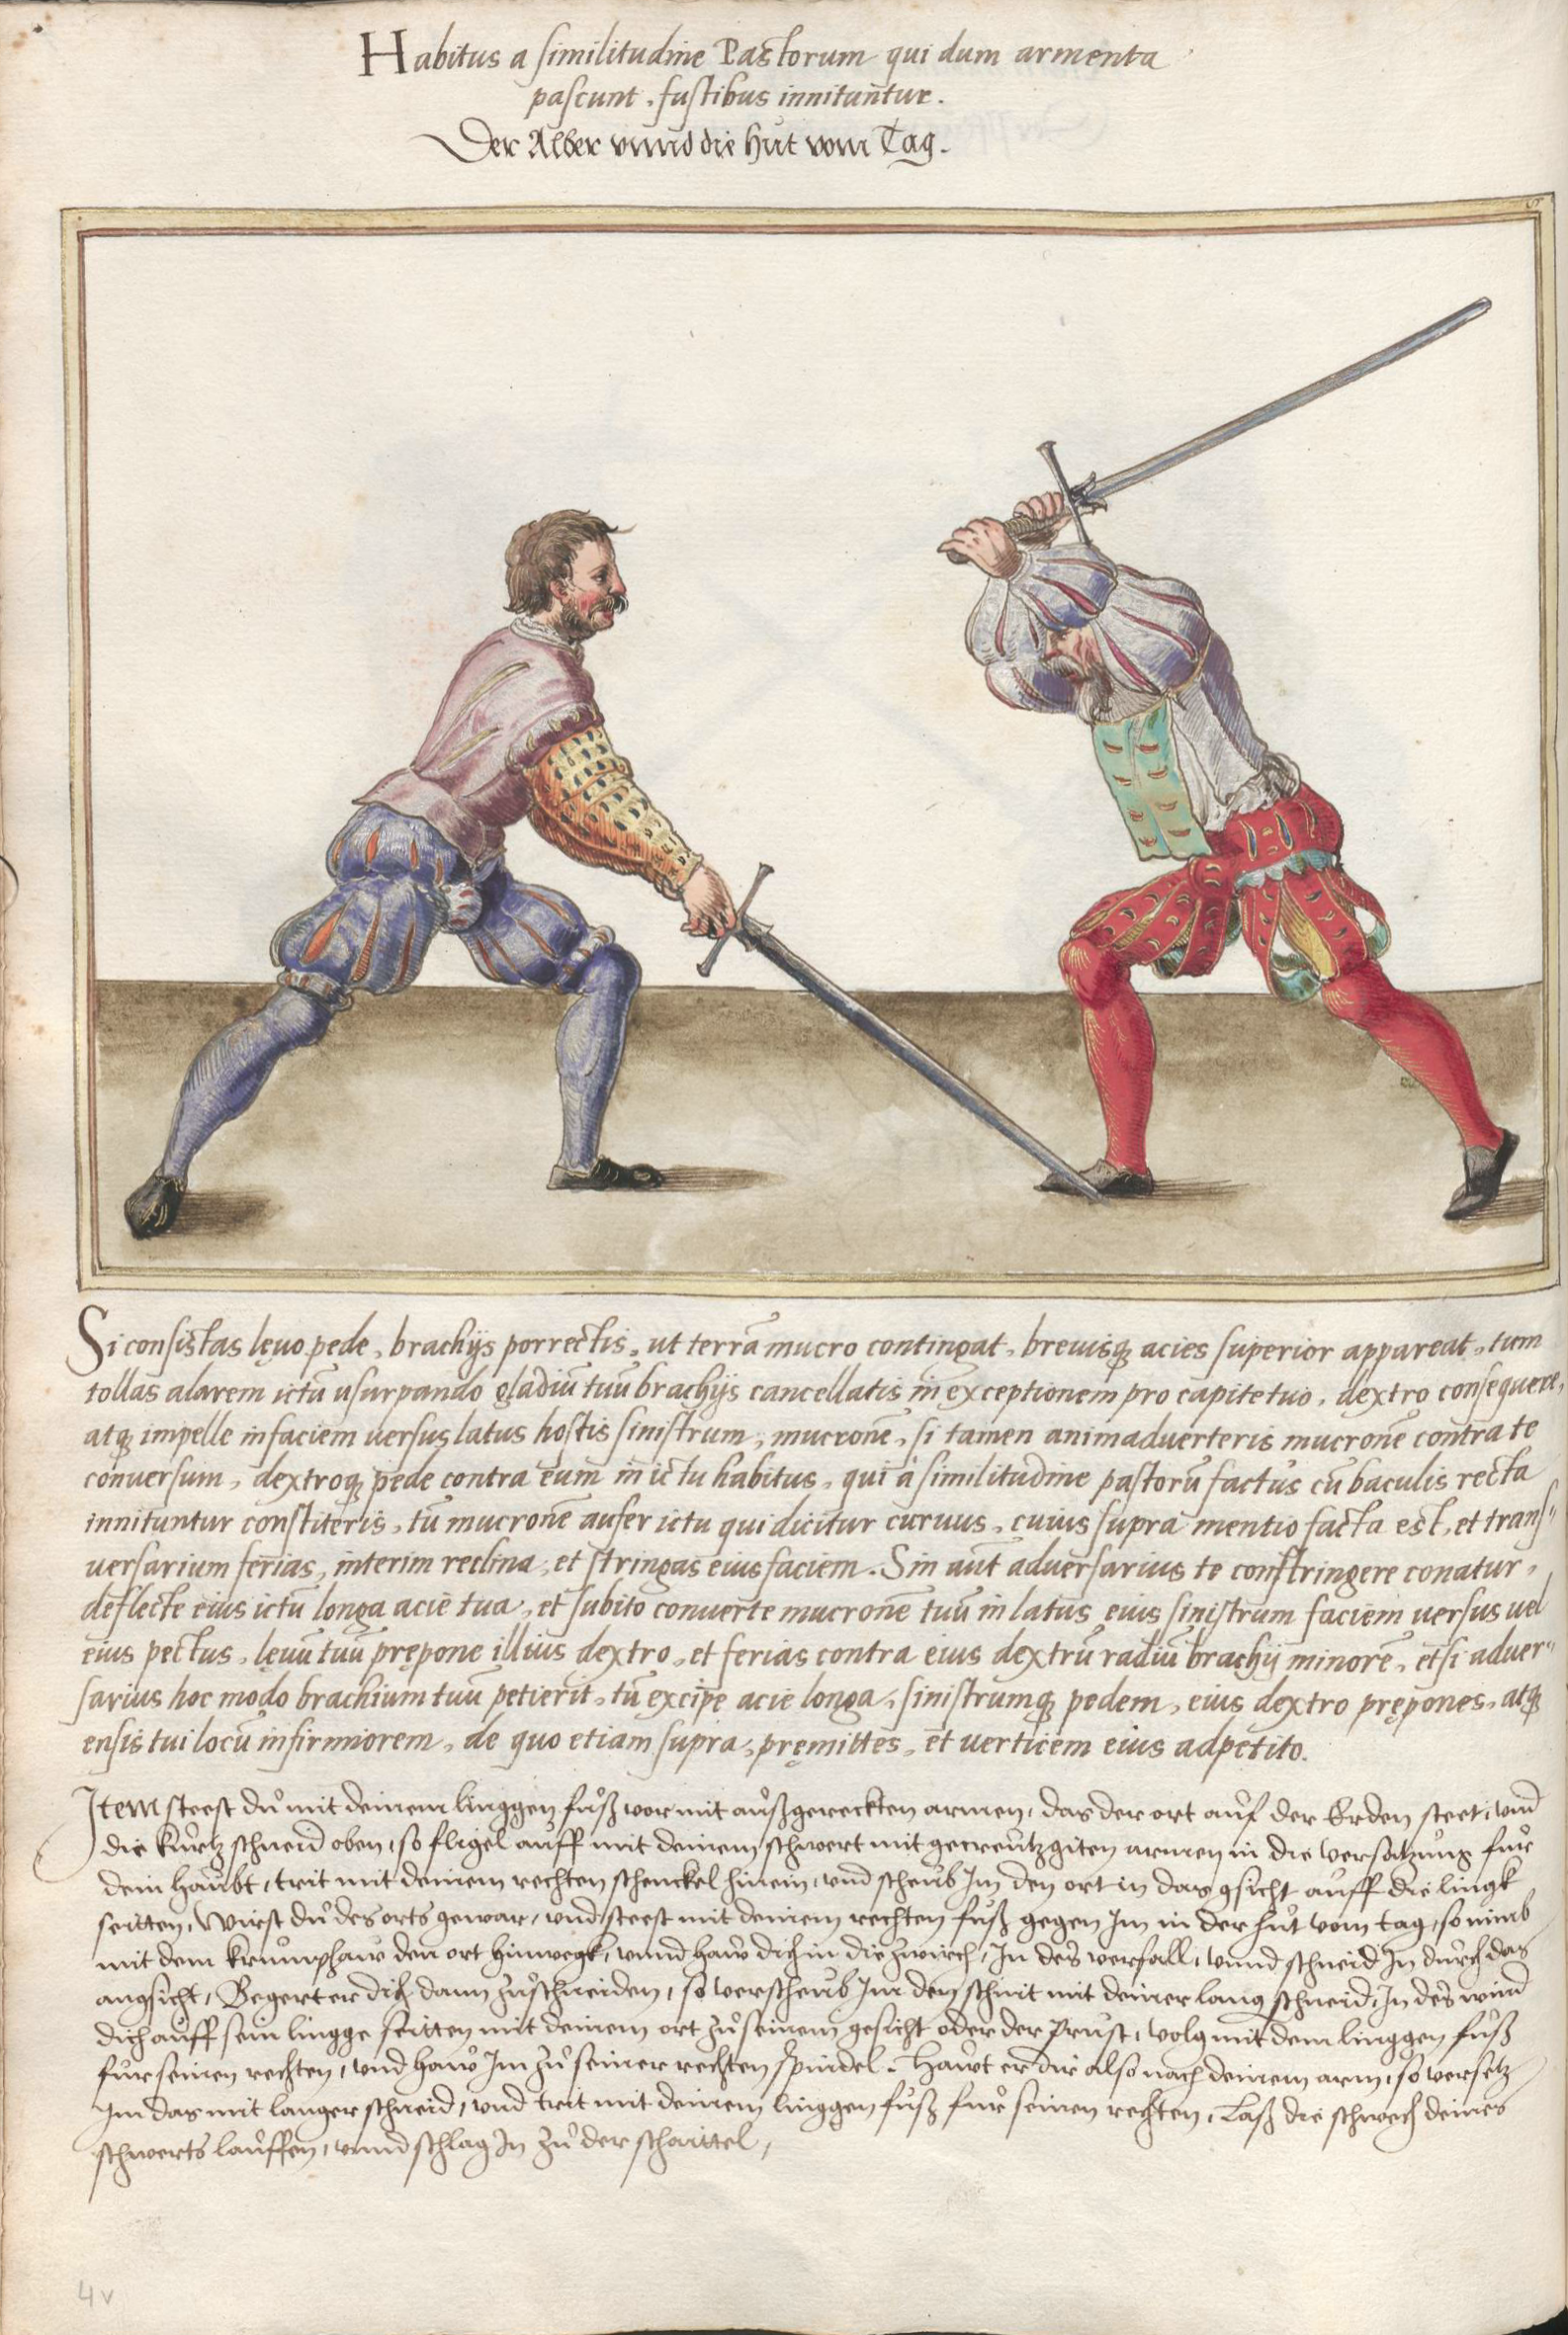 Habitus a similitudine Pastorum qui dum armenta
pascunt, fustibus innituntur.
Der Alber vnnd die hut vom Tag.
Si consistas lęuo pede, brachijs porrectis, ut terrã mucro contingat, breuisq; acies superior appareat, tum
tollas alarem ictũ usurpando gladiũ tuũ brachijs cancellatis in exceptionem pro capite tuo, dextro consequere,
atq; impelle in faciem uersus latus hostis sinistrum, mucronẽ, si tamen animaduerteris mucronẽ contra te
conuersum, dextroq; pede contra eum in ictu habitus, qui à similitudine pastorũ factus cũ baculis recta
innituntur constiteris, tũ mucronẽ aufer ictu qui dicitur curuus, cuius supra mentio facta est, et trans"
uersarium ferias, interim reclina, et stringas eius faciem. Sin aũt aduersarius te constringere conatur,
deflecte eius ictũ longa acie tua, et subito conuerte mucronẽ tuũ in latus eius sinistrum faciem uersus uel
eius pectus, lęuũ tuũ prępone illius dextro, et ferias contra eius dextrũ radiũ brachij minorẽ, etsi aduer"
sarius hoc modo brachium tuũ petierit, tũ excipe acie longa, sinistrumq; pedem, eius dextro prępones, atq;
ensis tui locũ infirmiorem, de quo etiam supra, pręmittes, et uerticem eius adpetito.
Item steest dů mit deinem linggen fůß vor mit außgereckten armen, das der ort auf der Erden steet, vnd
die kurtz schneid oben, so fligel auff mit deinem schwert mit gecreutzgiten armen in die versatzung fur
dein haubt, trit mit deinem rechten schenckel hinein, vnd scheub Im den ort in das gsicht auff die lingk
seitten, Wurst dů des orts gewar, vnd steest mit deinem rechten fůß gegen Im in der hut vom tag, so nimb
mit dem krumphaw den ort hinwegk, vnnd haw dich in die zwirch, In des verfall, vnnd schneid In durch das
angsicht, Begert er dich dann zůschneiden, so verscheub Im den schnit mit deiner lang schneid, In des wind
dich auff sein lingge seitten mit deinem ort zů seinem gesicht oder der Prust, volg mit dem linggen fůß
fur seinen rechten, vnd haw Im zů seiner rechten spindel. Hawt er dir also nach deinem arm, so versetz
Im das mit langer schneid, vnd trit mit deinem linggen fůß fur seinen rechten, Laß die schwech deines
schwerts lauffen, vnnd schlag In zů der schaittel,
4v